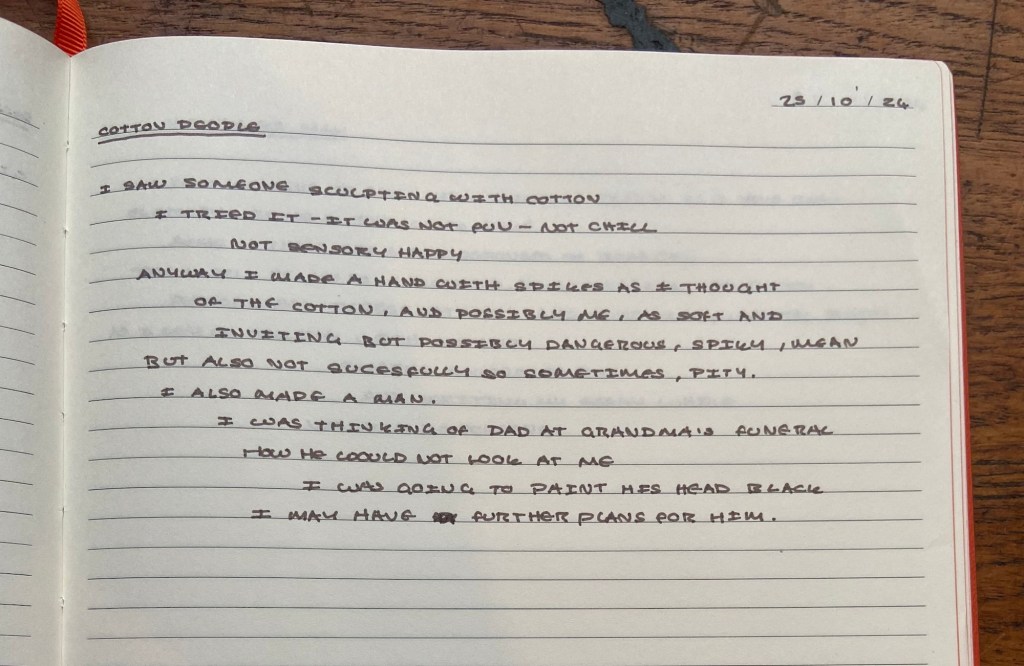 25/10/24
COTTON PEOPLE
I SAW SOMEONE SCULPTING WITH COTTON
I TRIED IT - IT WAS NOT FUN - NOT CHILL
NOT SENSORY HAPPY
ANYWAY I MADE A HAND WITH SPIKES AS I THOUGHT
OF THE COTTON, AND POSSIBLY ME, AS SOFT AND
INVITING BUT POSSIBLY DANGEROUS, SPIKY, MEAN
BUT ALSO NOT SUCESFULLY SO SOMETIMES, PITY.
I ALSO MADE A MAN.
I WAS THINKING OF DAD AT GRANDMA'S FUNERAL
HOW HE COOULD NOT LOOK AT ME
I WAS GOING TO PAINT HIS HEAD BLACK
I MAY HAVE FURTHER PLANS FOR HIM.